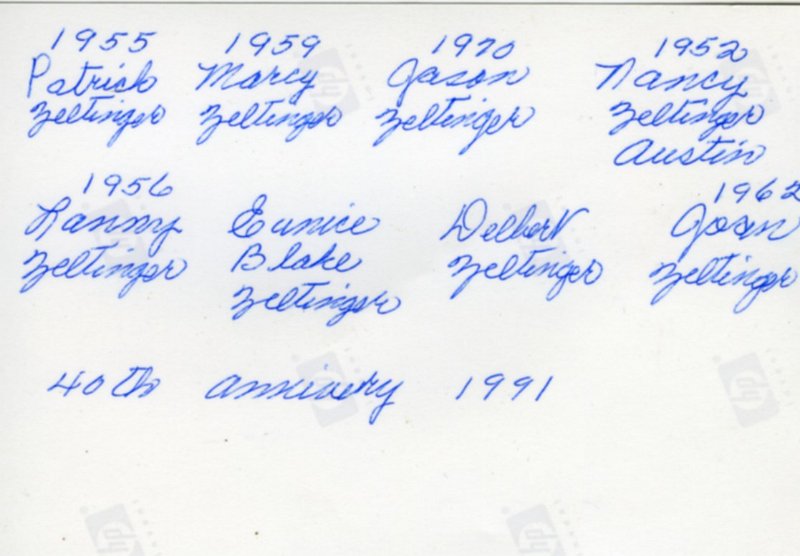 1955 1959 1970 1952
Patrick Marcy Jason Nancy
Zeltinger Zeltinger Zeltinger Zeltinger
Austin
1956 1962
Lanny Eunice Delbert Joan
Zeltinger Blake Zeltinger Zeltinger
Zeltinger
40th annivery 1991